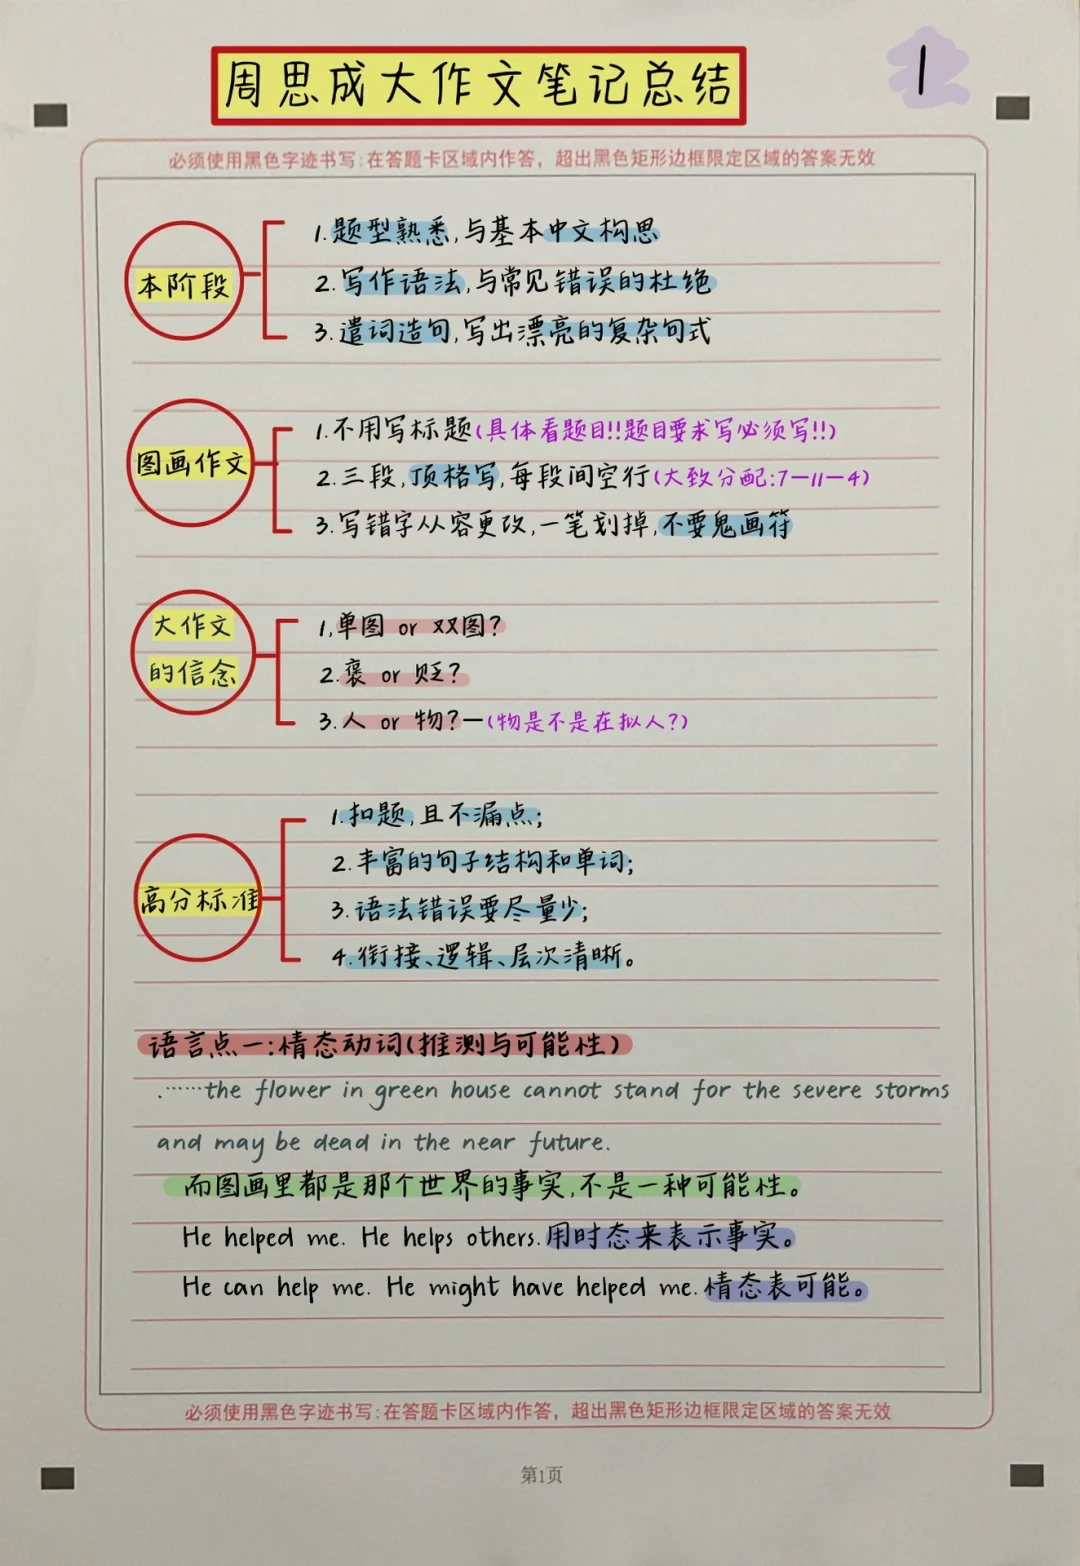 周思成大作文笔记总结
1
必须使用黑色字迹书写:在答题卡区域内作答，超出黑色矩形边框限定区域的答案无效
本阶段
1.题型熟悉,与基本中文构思
2.写作语法,与常见错误的杜绝
3.遣词造句,写出漂亮的复杂句式
图画作文
1.不用写标题(具体看题目!!题目要求写必须写!!)
2.三段,顶格写,每段间空行(大致分配:7—11—4)
3.写错字从容更改,一笔划掉,不要鬼画符
大作文
的信念
1,单图 or 双图?
2.褒 or 贬?
3.人 or 物?—(物是不是在拟人?)
高分标准
1.扣题,且不漏点;
2.丰富的句子结构和单词;
3.语法错误要尽量少;
4.衔接、逻辑、层次清晰。
语言点一:情态动词(推测与可能性)
.……the flower in green house cannot stand for the severe storms
and may be dead in the near future.
而图画里都是那个世界的事实,不是一种可能性。
He helped me. He helps others.用时态来表示事实。
He can help me. He might have helped me.情态表可能。
必须使用黑色字迹书写:在答题卡区域内作答，超出黑色矩形边框限定区域的答案无效
第1页